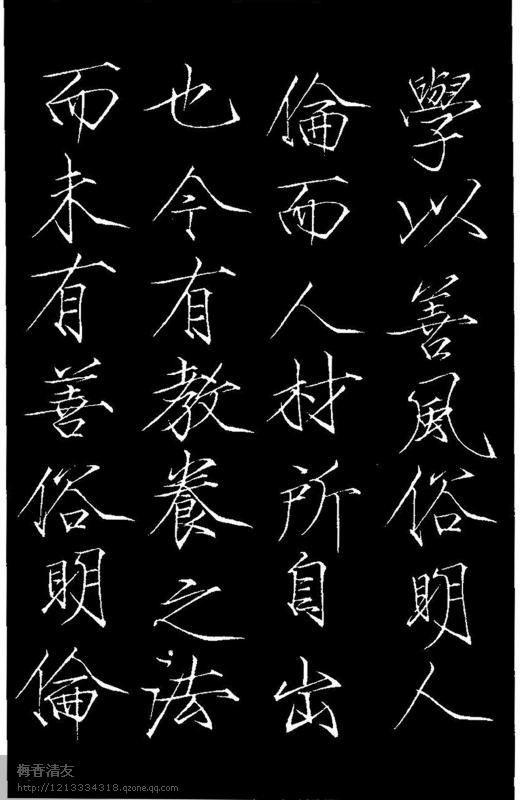 學以善風俗明人
倫而人材所自出
也今有教養之法
而未有善俗明倫
梅香清友
http://1213334318.qzone.qq.com